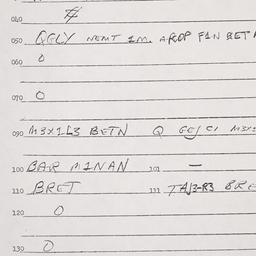 040 #
050 QGLY NEMT 1M. AROP FIN BET
060 0
070 0
090 M3X1L3 BETN Q GEJ CI M3X
100 BAR MINAN 101 —
110 BRET 111 TAJ2-R3 BRE
120 0
130 0